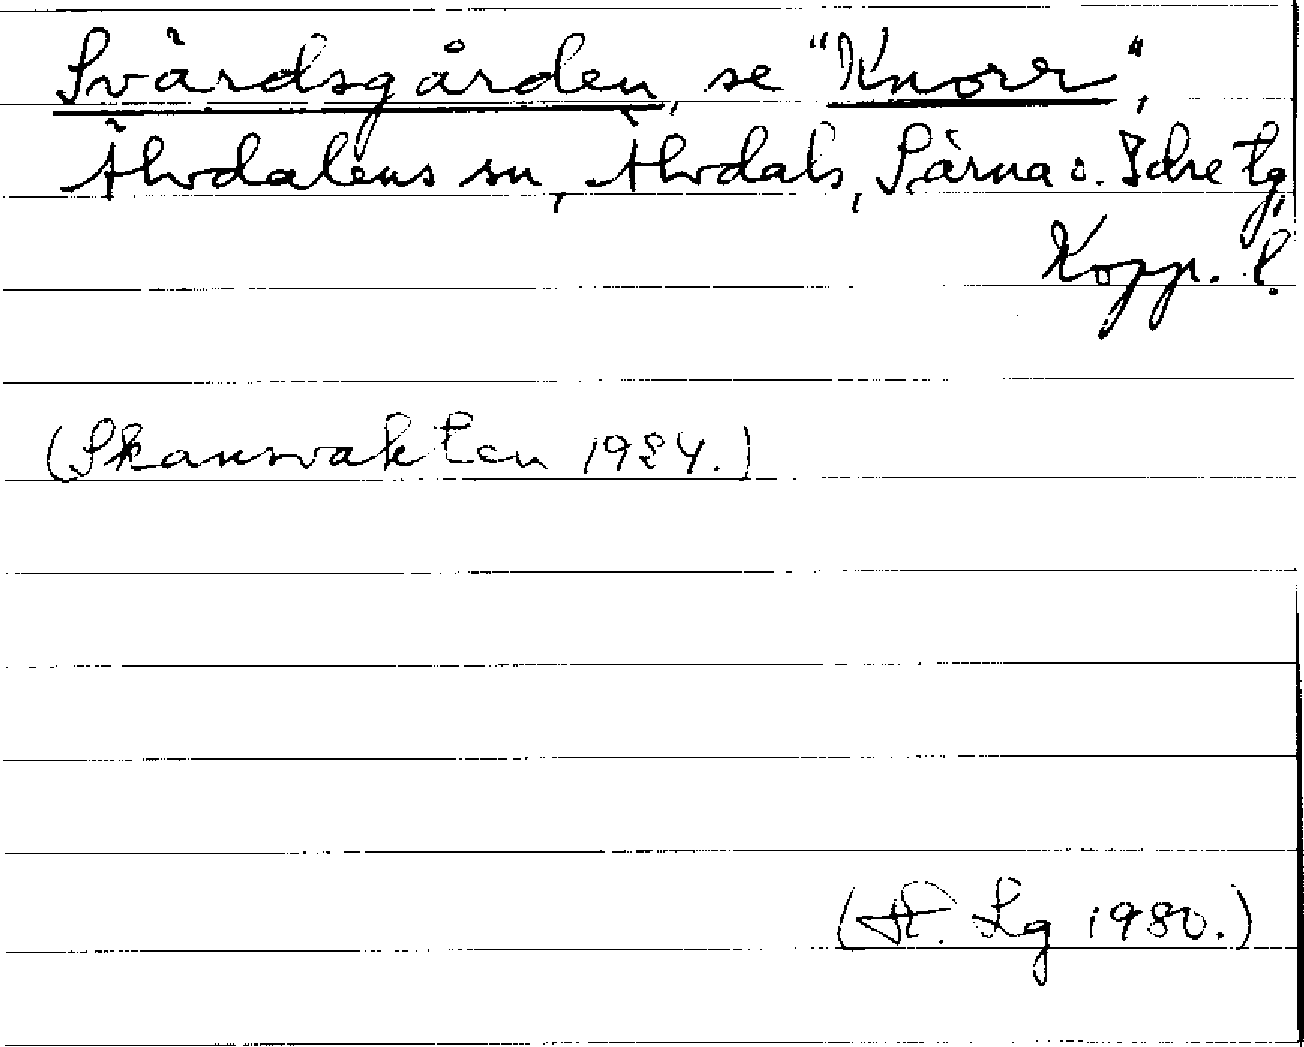 Svärdsgården, se "Knorr",
Älvdalens sn, Älvdals, Särna o. Idre tg,
Kopp. l.
(Skansvakten 1924.)
(H. Lg 1980.)